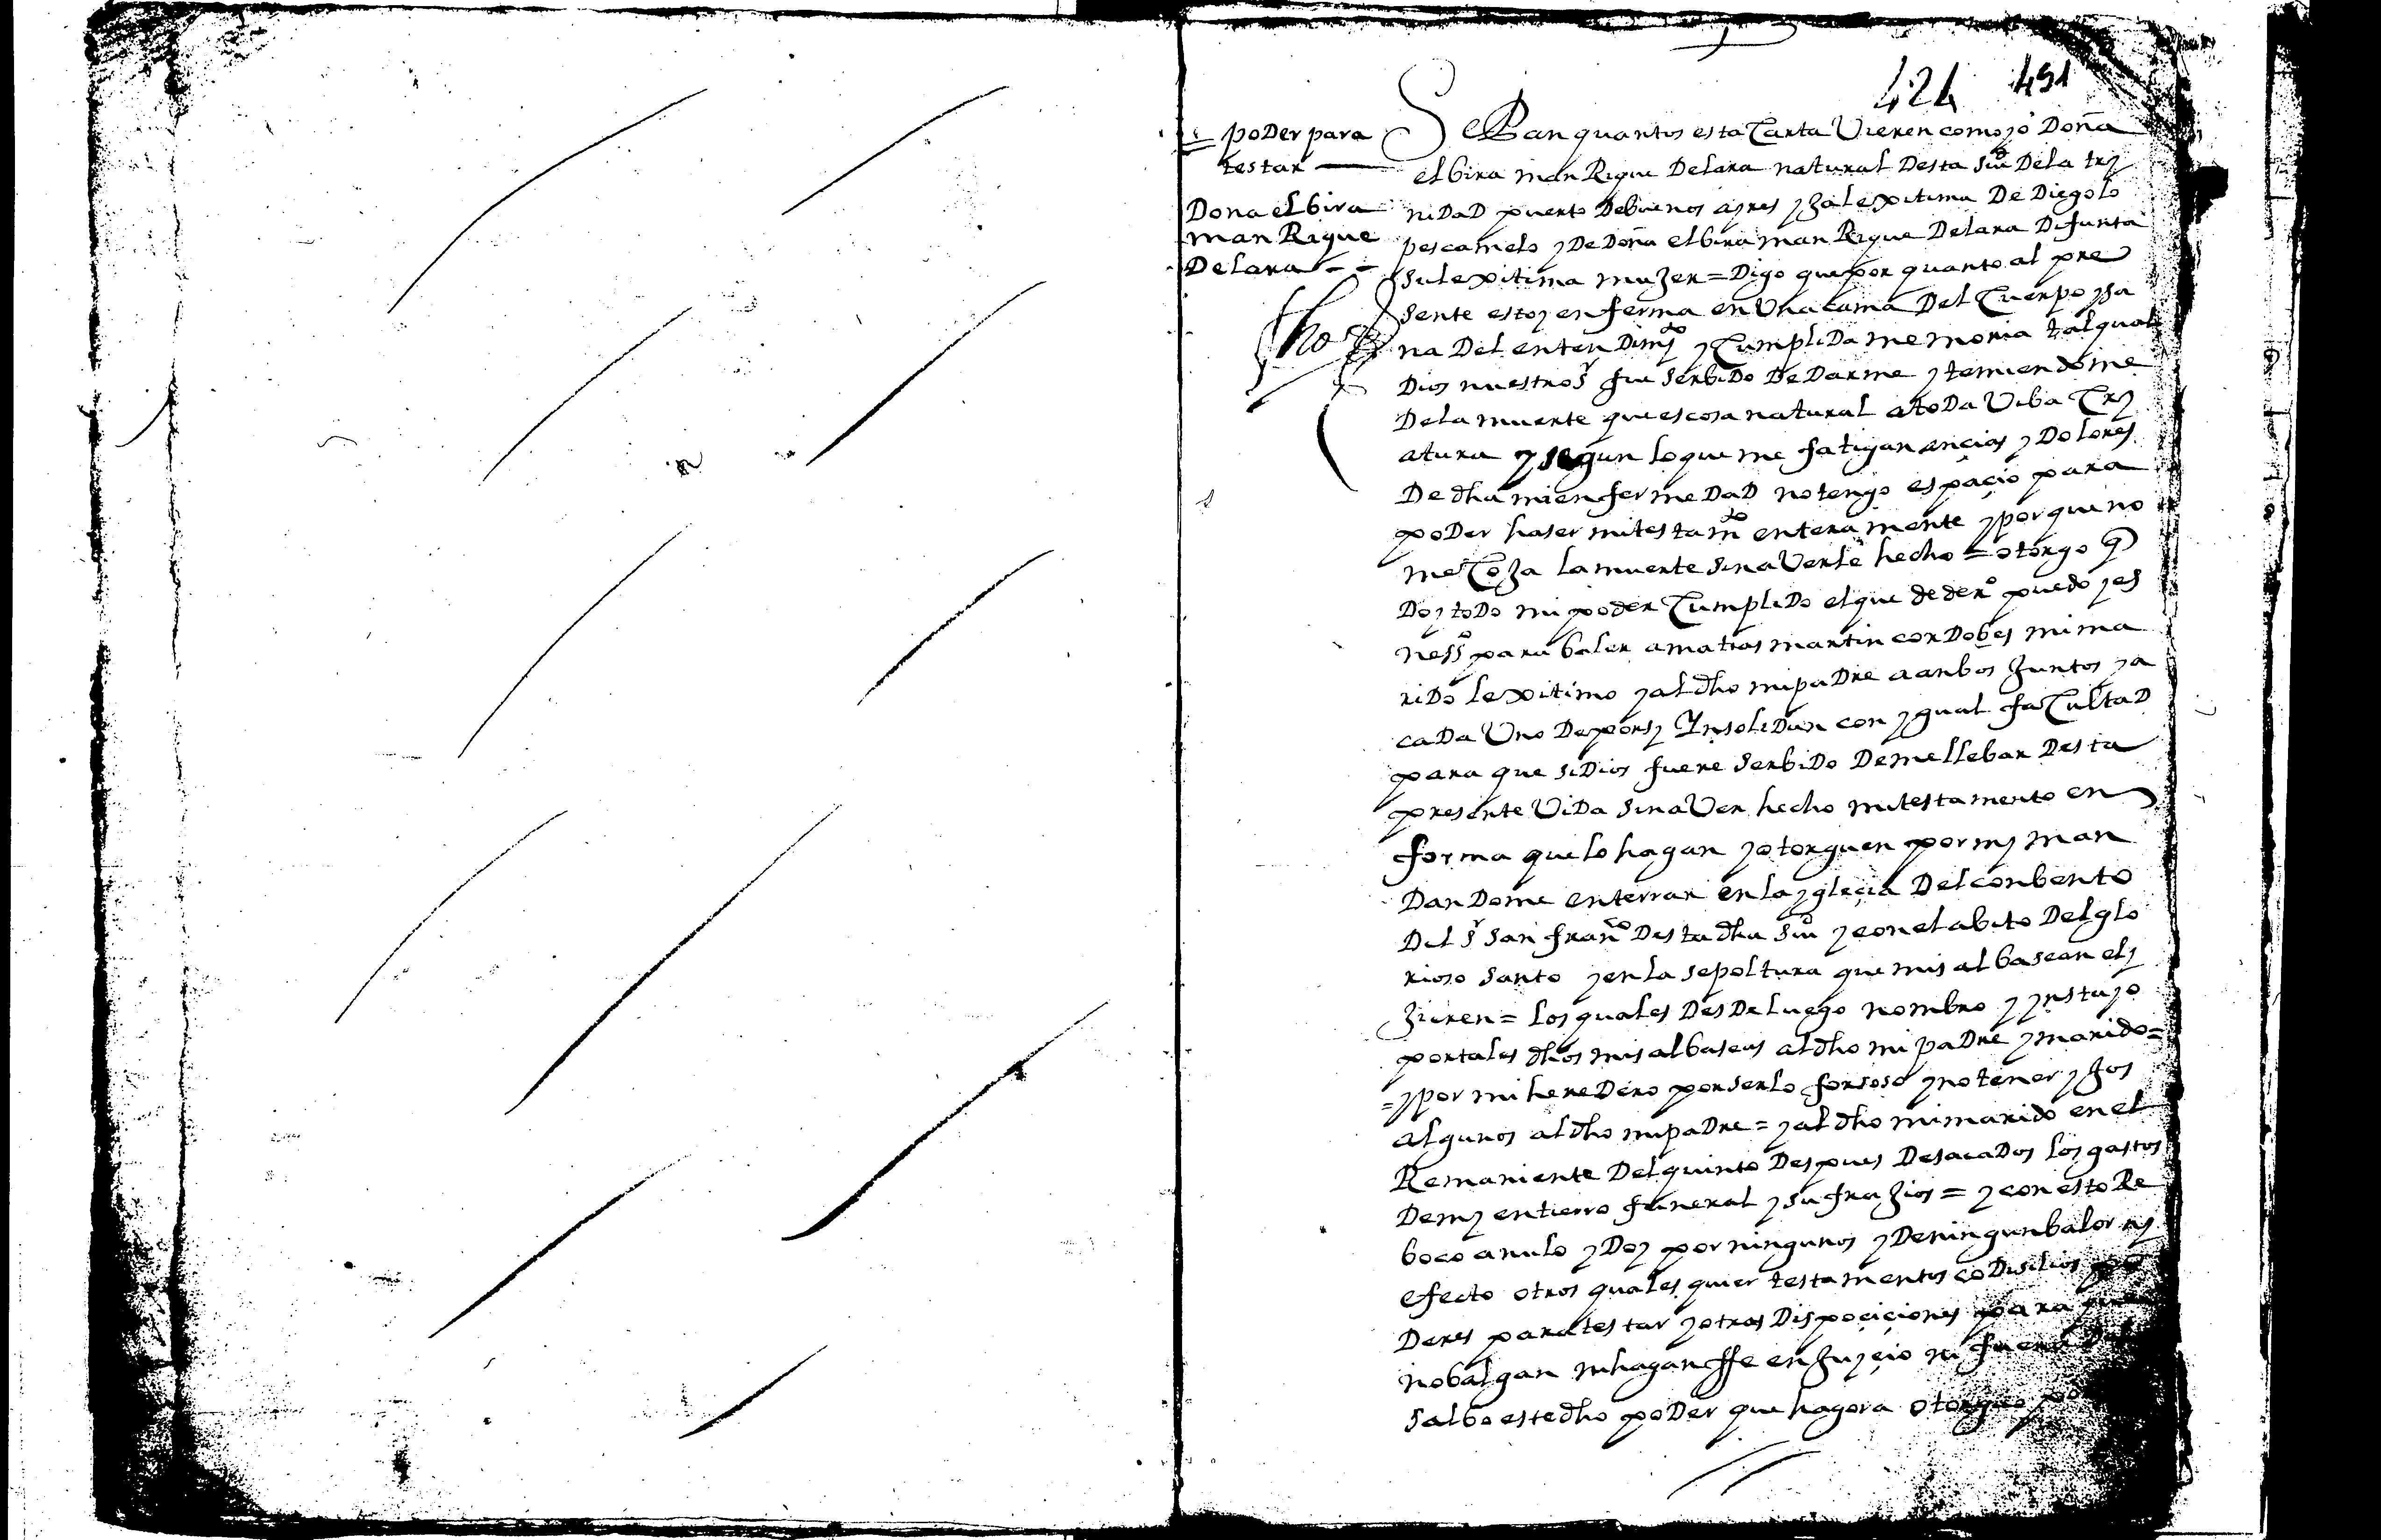 424 491
poDer para
testar
Dona elbira
manRique
Delara
Sepan quantos esta Carta Vieren como yo Doña
elbira manRique Delara natural Desta Ciud Dela tri
niDaD puerto Debuenos ayres yja lexitima De Diego lo
pes camelo y De Doña elbira manRique Delara Difunta
su lexitima mujer = Digo que por quanto al pre
sente estoy enferma en Una cama Del Cuerpo y sa
na Del entenDimyto y CumpliDa memoria tal qual
Dios nuestro Sr fue serbiDo De Darme y temiendome
Dela muerte que es cosa natural a toDa Viba Cri
atura y segun lo que me fatigan ancias y Dolores
De dha mi enfermeDaD no tengo espacio para
poDer haser mi testamto enteramente y porque no
me Coja la muerte sin aVerle hecho = otorgo q
Doy toDo mi poder CumpliDo el que de dero puedo y es
nesso para baler a matias martin corDobes mi ma
riDo lexitimo y al dho mi paDre a anbos juntos y a
caDa Uno De por sy Ynsolidun con ygual faCultaD
para que si Dios fuere serbiDo De me llebar Desta
presente ViDa sin aVer hecho mi testamento en
forma que lo hagan y otorguen por my man
DanDome enterrar en la yglecia Del conbento
Del Sr San franco Desta dha Ciud y con el abito Del glo
rioso santo y en la sepoltura que mis albaseas ely
jieren = los quales DesDe luego nombro y ynstuyo
por tales dhos mis albaseas al dho mi paDre y marido =
= y por mi hereDero por serlo forsoso y no tener yjos
algunos al dho mi paDre = y al dho mi marido en el
Remaniente Del quinto Despues De sacaDos los gastos
De my entierro funeral y sufrajios = y con esto Re
boco anulo y Doy por ningunos y De ningun balor ny
efecto otros quales quier testamentos coDisilios po
Deres para testar y otras Disposiciones para que
no balgan ni hagan ffe en juycio ni fuera Del
salbo este dho poDer que hagora otorgo